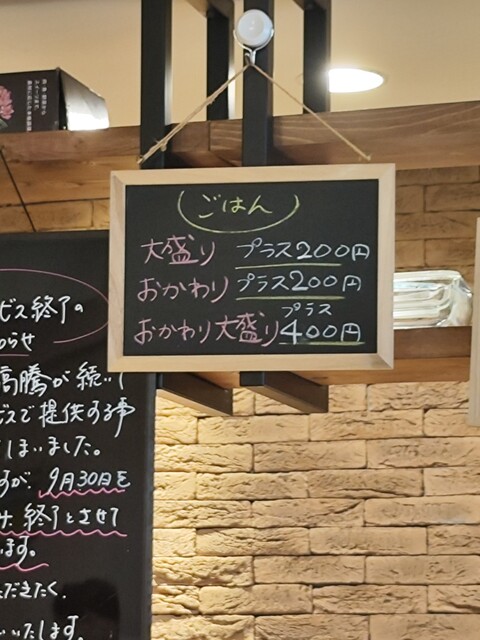 ごはん
大盛り プラス200円
おかわり プラス200円
おかわり大盛り プラス400円
ビス終了の
らせ
高騰が続いて
ビスで提供する事
しまいました。
すが、9月30日を
終了とさせて
います。
ただきたく、
いたします。